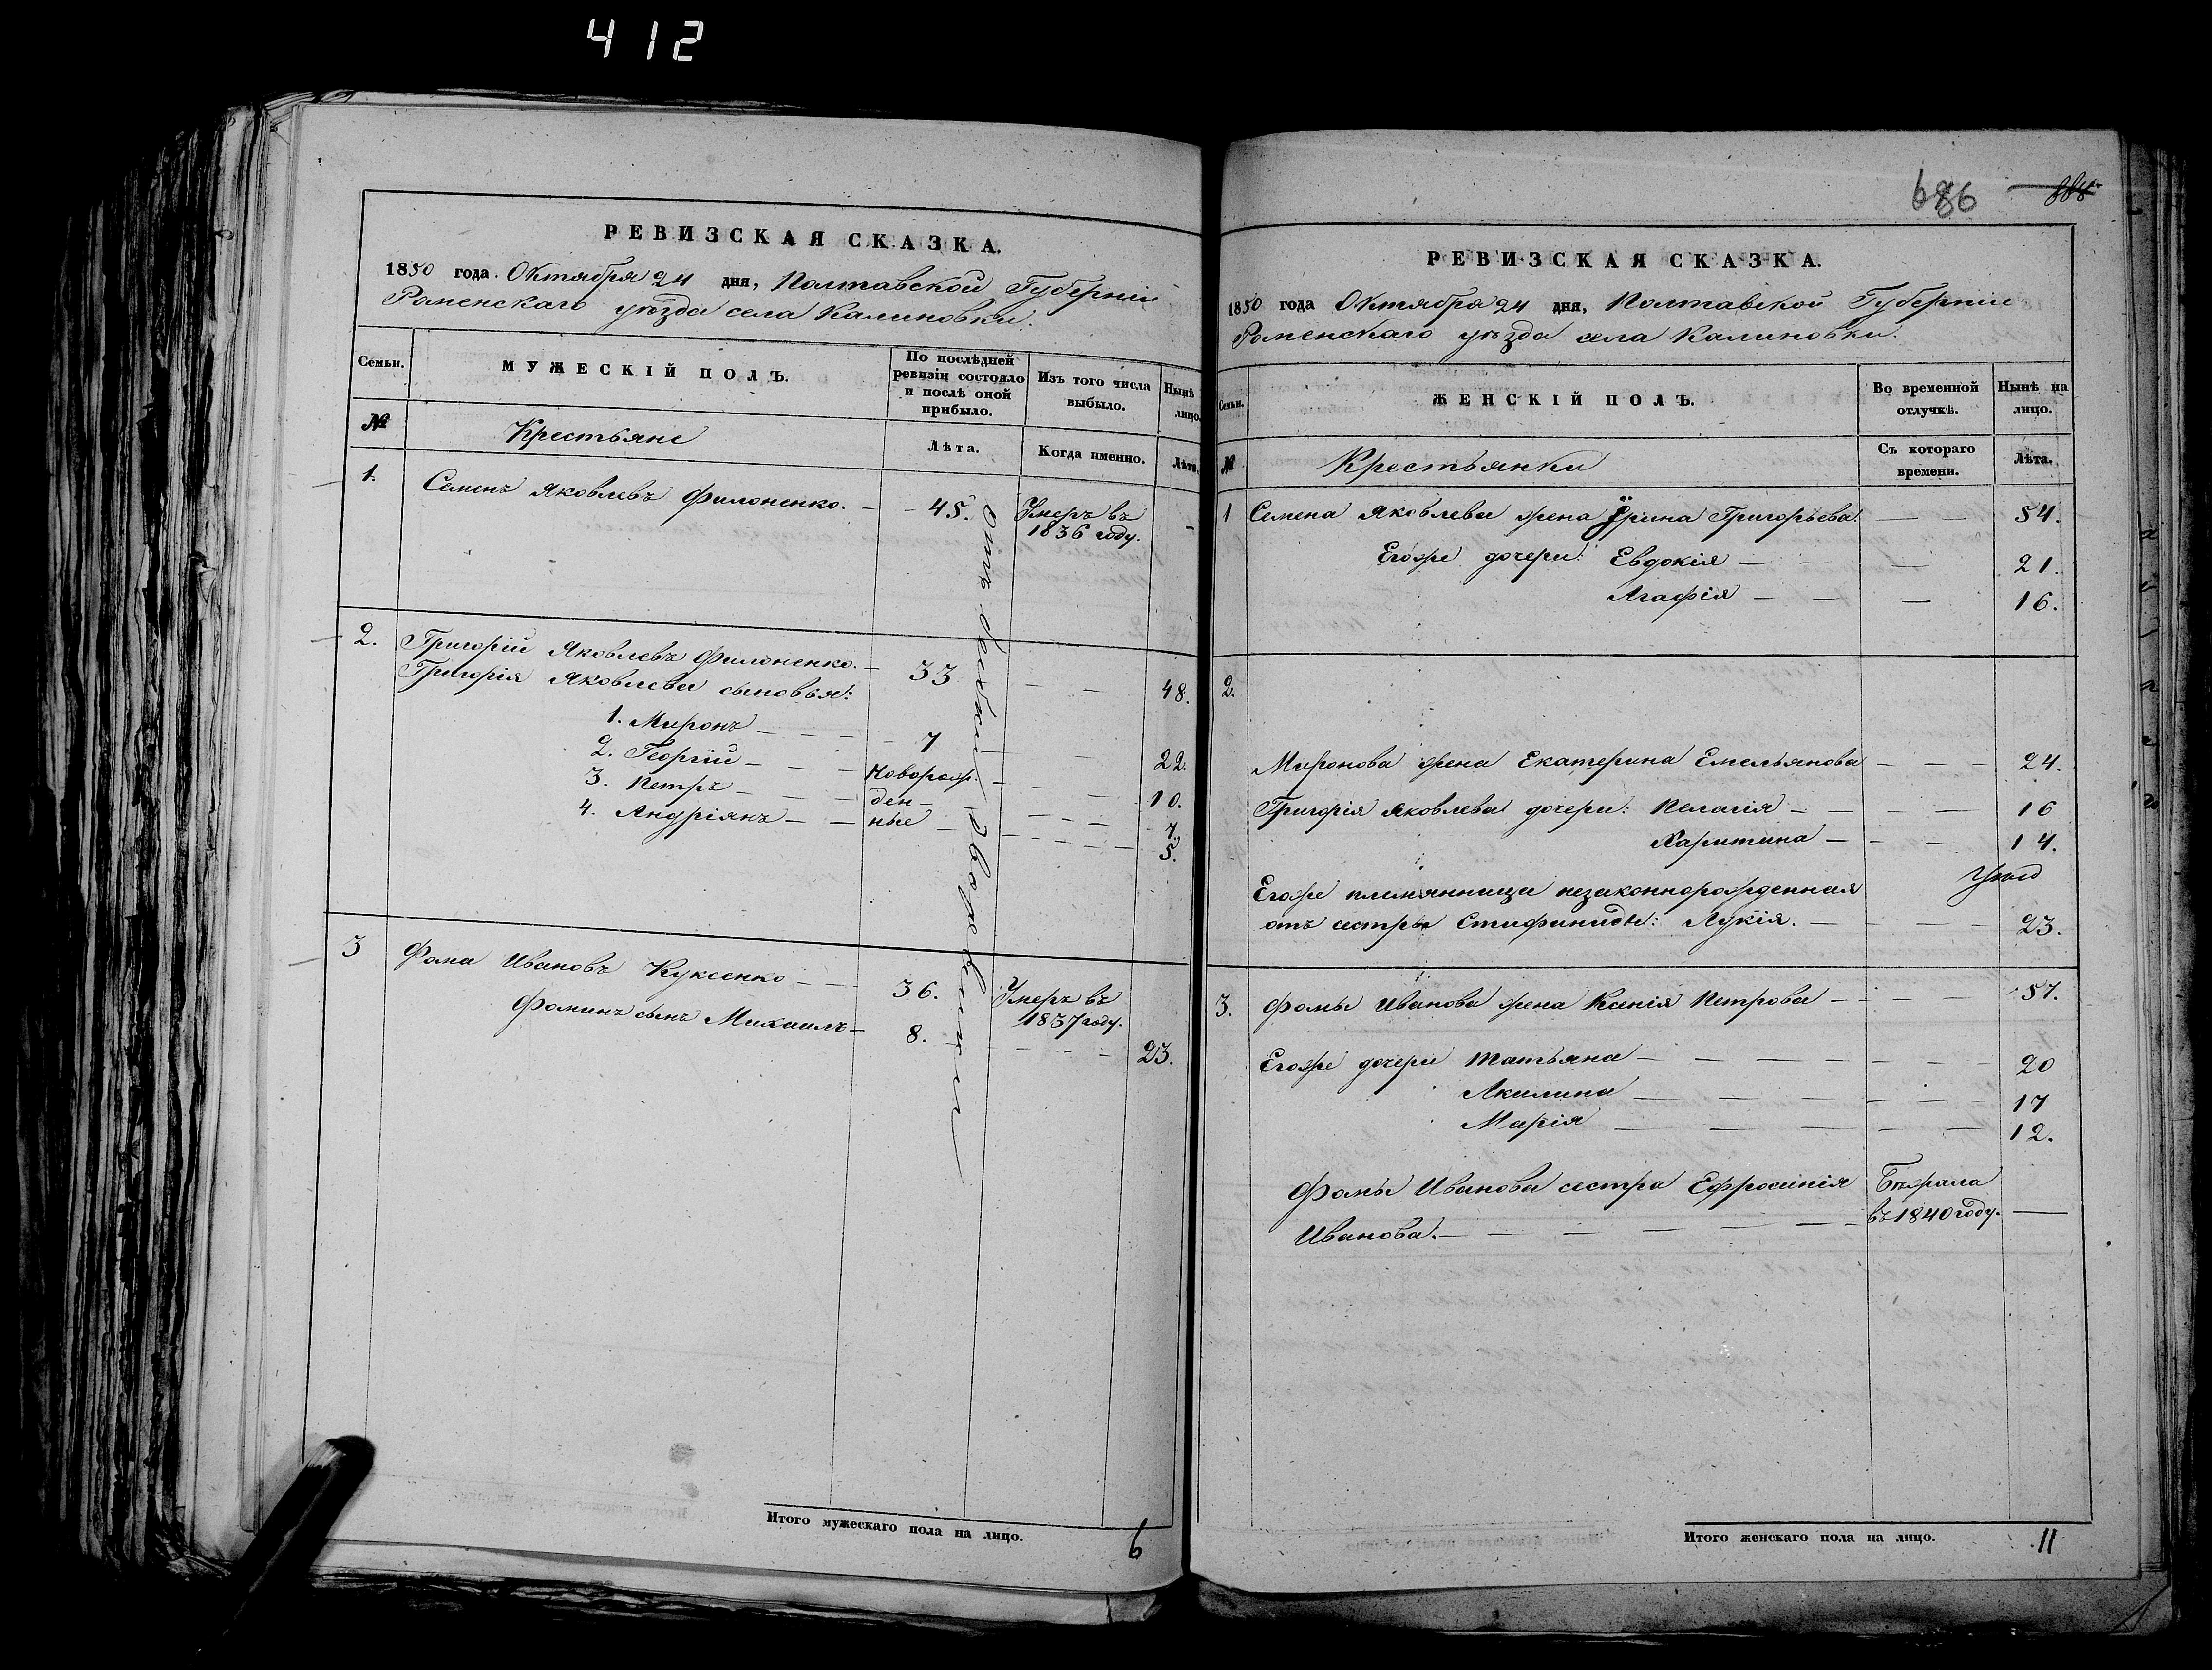 412
РЕВИЗСКАЯ СКАЗКА.
1850 года Октября 24 дня, Полтавской Губерніи
Роменскаго уѣзда села Калиновки.
Семьи.
МУЖЕСКІЙ ПОЛЪ.
По послѣдней ревизіи состояло и послѣ оной прибыло.
Изъ того числа выбыло.
Нынѣ лицо.
№
Крестьяне
Лѣта.
Когда именно.
Лѣта.
1. Семенъ Яковлевъ Филоненко. — 45. Умеръ въ 1836 году. -
2. Григорій Яковлевъ Филоненко. — 33 — — 48.
Григорія Яковлева сыновья:
1. Миронъ — — — 7 — 22.
2. Георгій — — — Новорож- — — 10.
3. Петръ — — — ден- — — — 7.
4. Андріянъ — — ные — — — — 5.
3 Фома Ивановъ Куксенко — — 36. Умеръ въ 1837 году.
Фоминъ сынъ Михаилъ — 8. — — — 23.
Итого мужескаго пола на лицо. 6
686 888
РЕВИЗСКАЯ СКАЗКА.
1850 года Октября 24 дня, Полтавской Губерніи
Роменскаго уѣзда села Калиновки.
Семьи.
ЖЕНСКІЙ ПОЛЪ.
Во временной отлучкѣ.
Нынѣ на лицо.
№
Крестьянки
Съ котораго времени.
Лѣта.
1 Семена Яковлева жена Ирина Григорьева. — — 54.
Егоже дочери: Евдокія — — — 21.
Агафія — — — 16.
2.
Миронова жена Екатерина Емельянова — — — 24.
Григорія Яковлева дочери: Пелагія — — — — 16
Харитина — — — 14.
Егоже племянница незаконнорожденная
отъ сестры Стифиниды: Лукія. — — — — 23.
3. Фомы Иванова жена Ксенія Петрова — — — — 57.
Егоже дочери Татьяна — — — — — — — 20
Акилина — — — — — — — 17
Марія — — — — — — 12.
Фомы Иванова сестра Ефросинія
Иванова. — — — — — въ 1840 году. —
Итого женскаго пола на лицо. 11